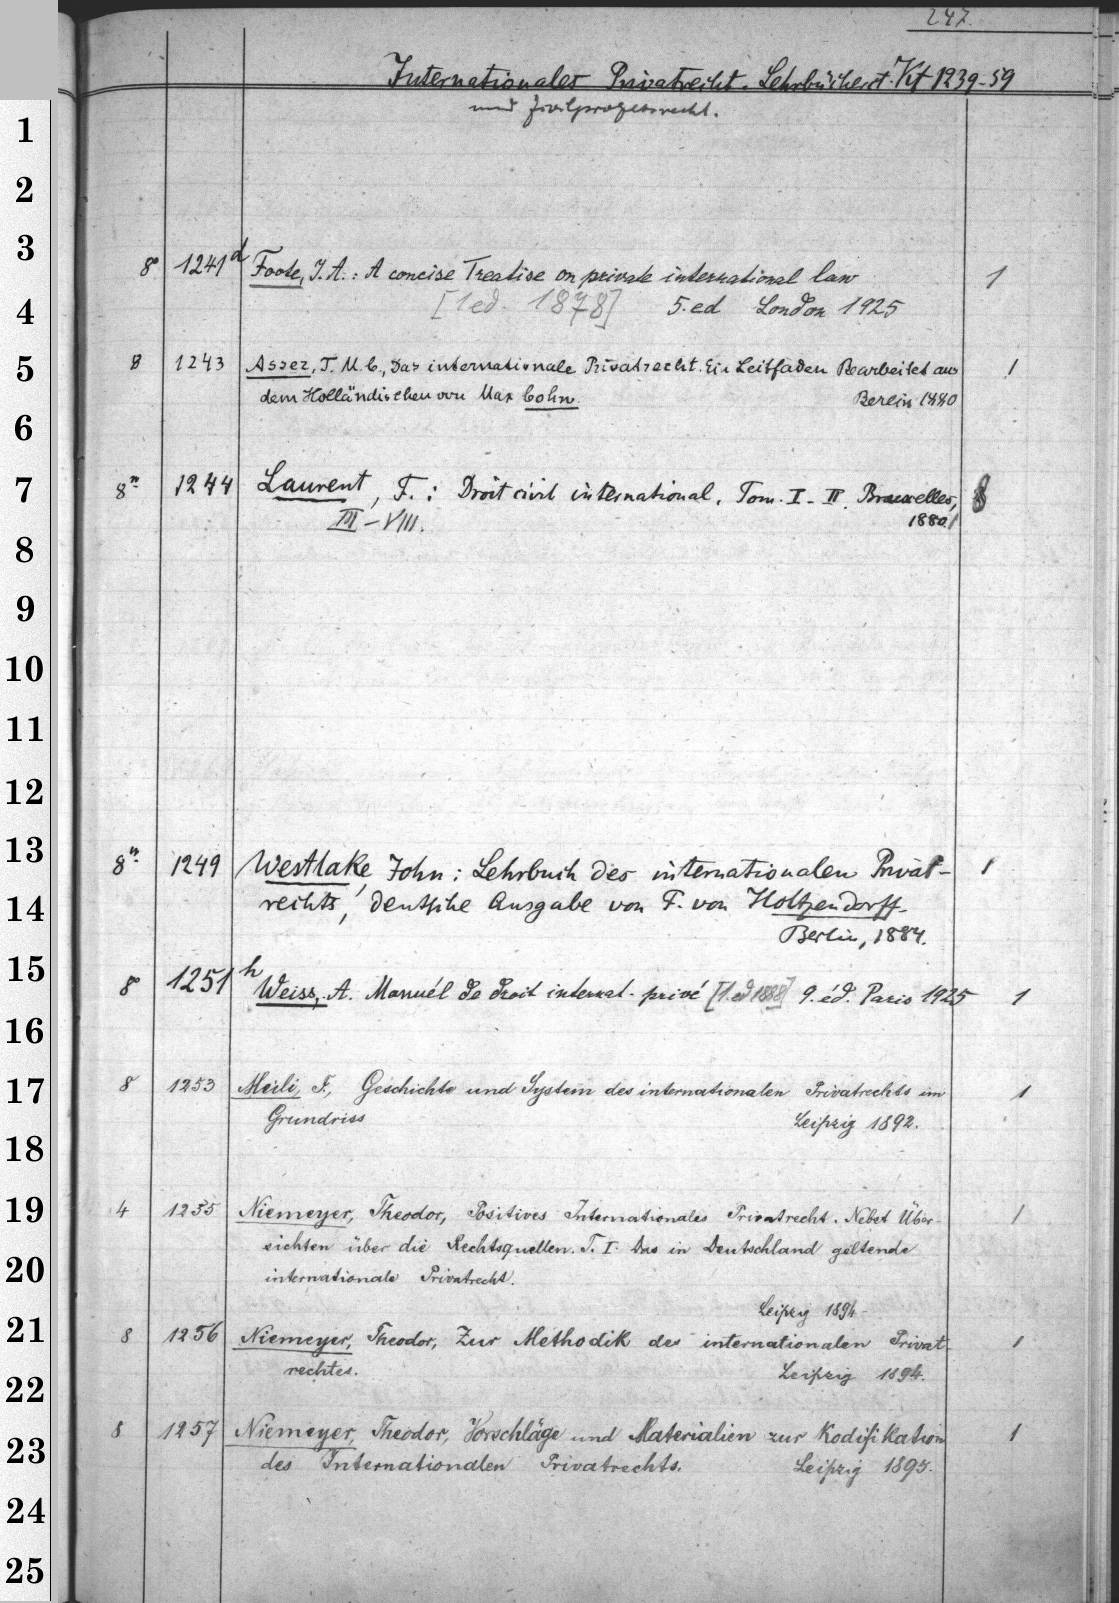 247.
Internationales Privatrecht. Lehrbücher Kt 1239-59
und Zivilprozessrecht.
1
2
3
8 1241d Foote, J. A.: A concise Treatise on private international law 1
4
[1 ed. 1878] 5. ed London 1925
5
8 1243 Asser, T. M. C., Das internationale Privatrecht. Ein Leitfaden Bearbeitet aus 1
dem Holländischen von Max Cohn. Berlin 1880
6
7
8º 1244 Laurent, F.: Droit civil international. Tom. I-II. Bruxelles, 8
III-VIII. 1880.
8
9
10
11
12
13
8º 1249 Westlake, John: Lehrbuch des internationalen Privat- 1
14
rechts, deutsche Ausgabe von F. von Holtzendorff.
Berlin, 1884.
15
8 1251h Weiss, A. Manuél de droit internat. privé [1. ed 1888] 9. éd. Paris 1925 1
16
17
8 1253 Meili, F., Geschichte und System des internationalen Privatrechts im 1
Grundriss Leipzig 1892.
18
19
4 1255 Niemeyer, Theodor, Positives Internationales Privatrecht. Nebst Über- 1
sichten über die Rechtsquellen. T. I. Das in Deutschland geltende
20
internationale Privatrecht.
Leipzig 1894
21
8 1256 Niemeyer, Theodor, Zur Methodik des internationalen Privat- 1
rechtes. Leipzig 1894.
22
23
8 1257 Niemeyer, Theodor, Vorschläge und Materialien zur Kodifikation 1
des Internationalen Privatrechts. Leipzig 1895.
24
25